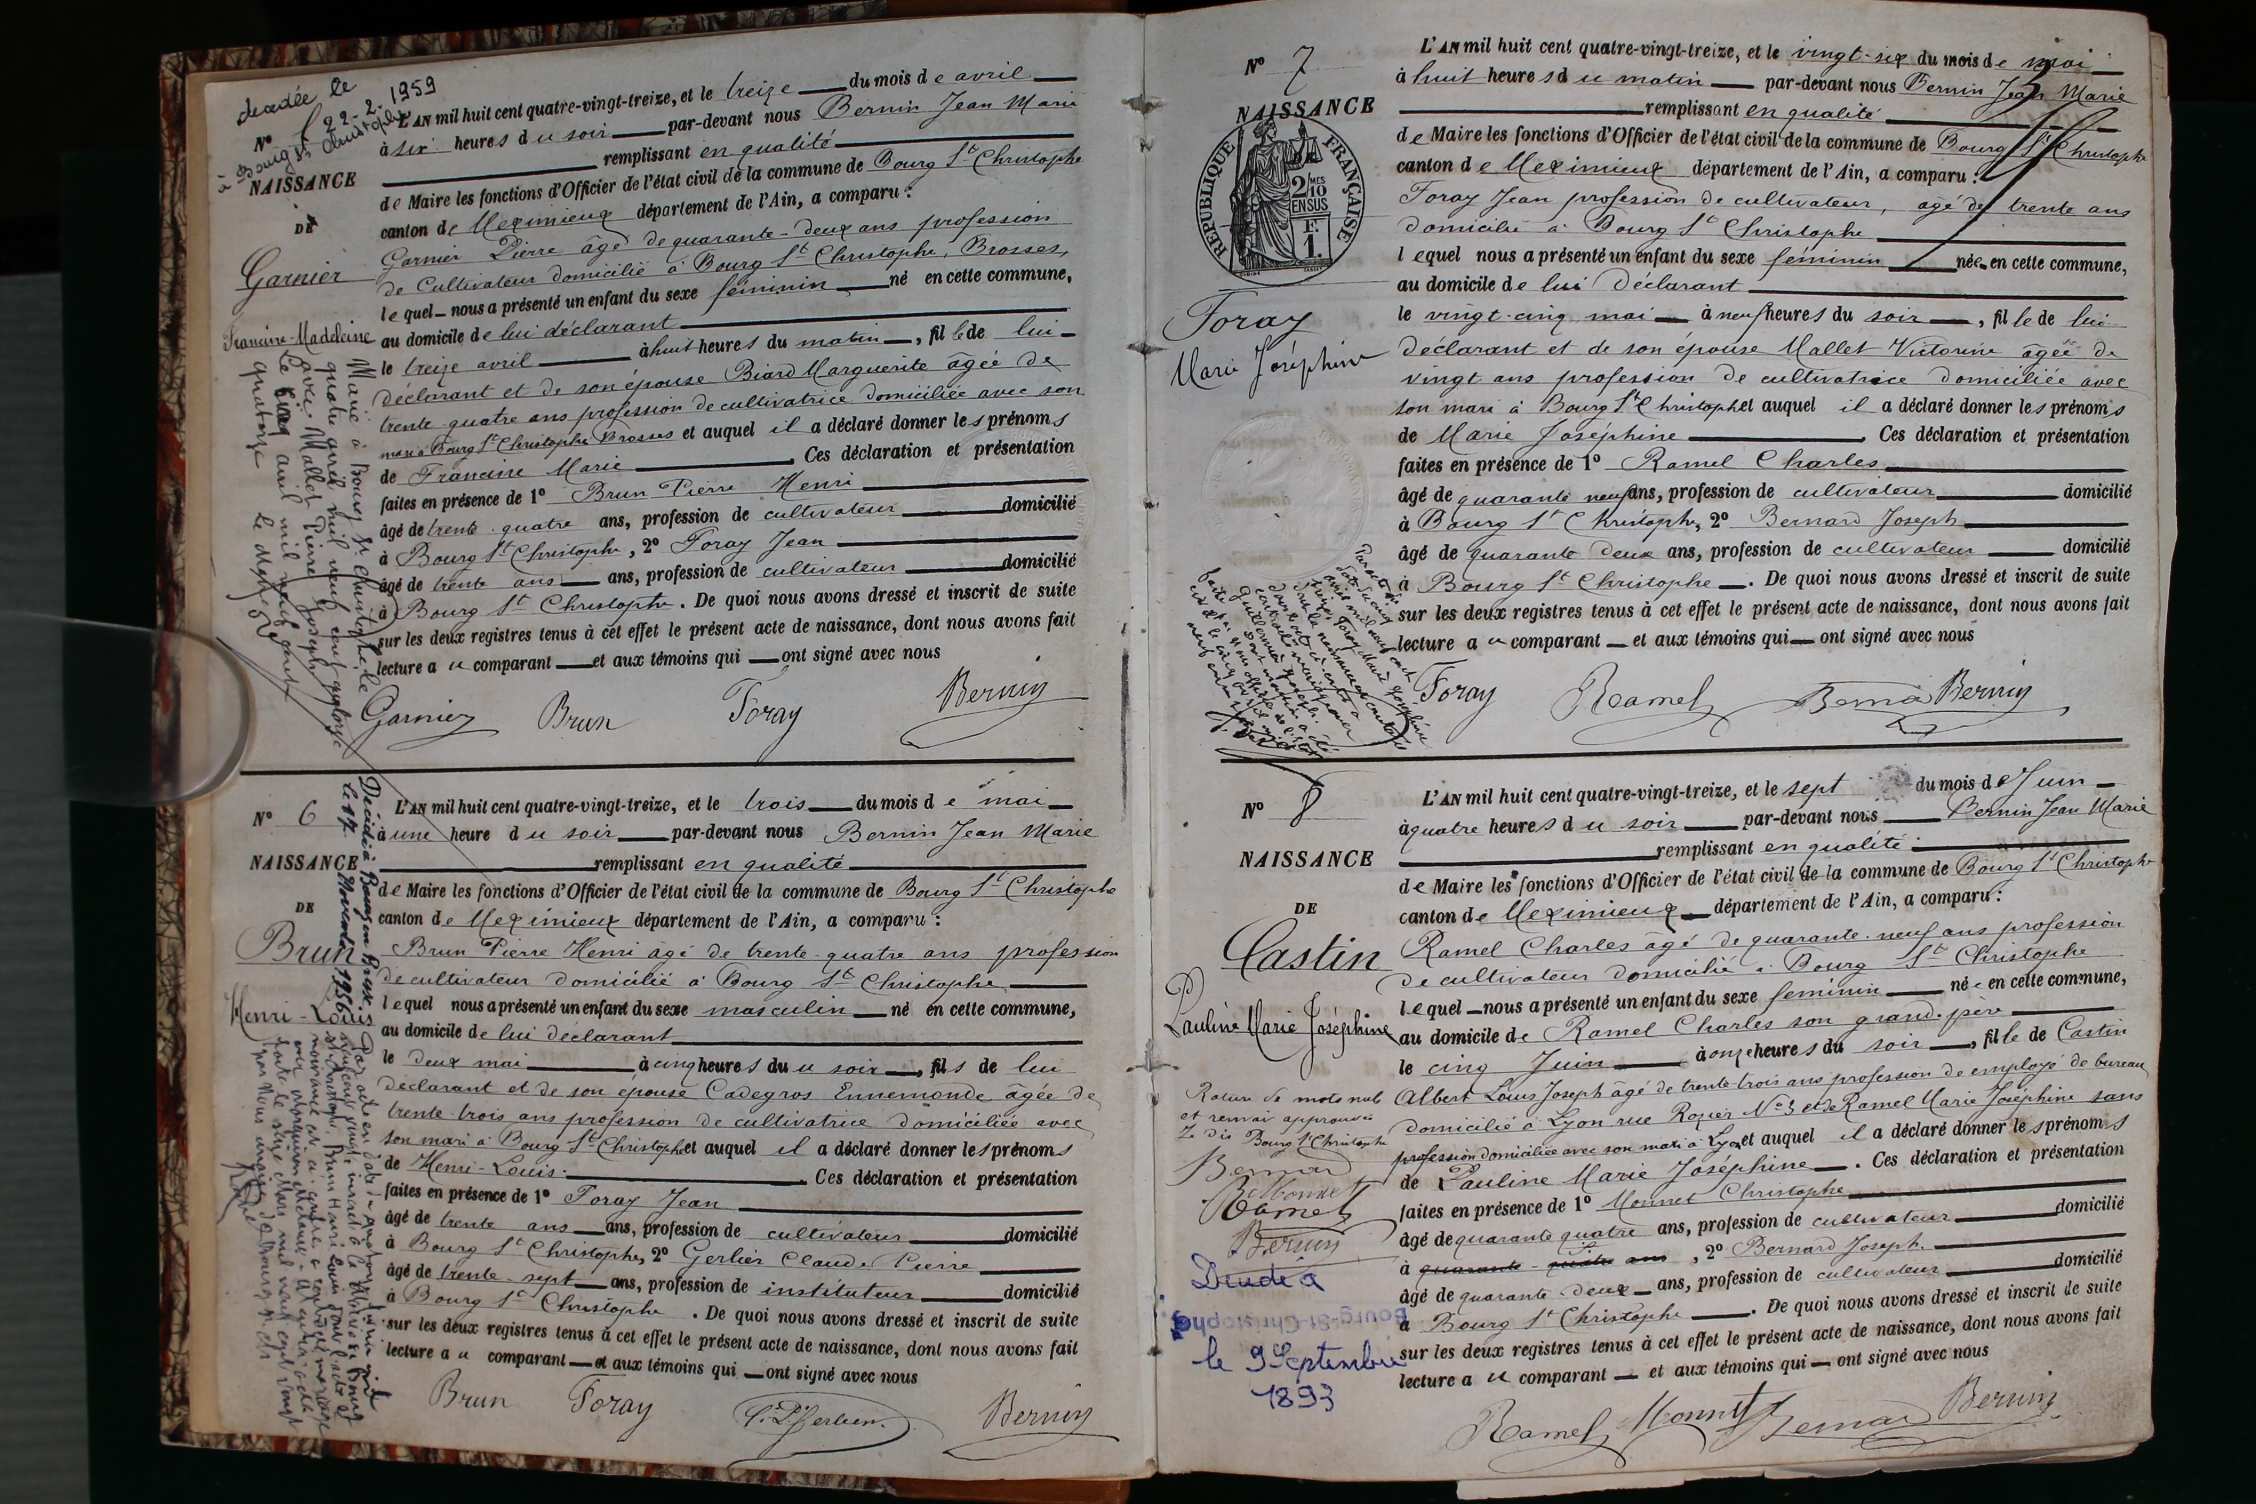 decedée le
22-2-1959
à Bourg St Christophe
No
NAISSANCE
DE
Garnier
Francine-Madeleine
L'AN mil huit cent quatre-vingt-treize, et le treize du mois de avril
à six heures du soir par-devant nous Bernin Jean Marie
remplissant en qualité
de Maire les fonctions d'Officier de l'état civil de la commune de Bourg St Christophe
canton de Meximieux département de l'Ain, a comparu :
Garnier Pierre âgé de quarante-deux ans profession
de Cultivateur domicilié à Bourg St Christophe, Brosses,
lequel nous a présenté un enfant du sexe féminin né en cette commune,
au domicile de lui déclarant
le treize avril à huit heures du matin, fille de lui
déclarant et de son épouse Biard Marguerite âgée de
trente quatre ans profession de cultivatrice domiciliée avec son
mari à Bourg St Christophe Brosses et auquel il a déclaré donner les prénoms
de Francine Marie. Ces déclaration et présentation
faites en présence de 1o Brun Pierre Henri
âgé de trente quatre ans, profession de cultivateur domicilié
à Bourg St Christophe, 2o Foray Jean
âgé de trente ans ans, profession de cultivateur domicilié
à Bourg St Christophe. De quoi nous avons dressé et inscrit de suite
sur les deux registres tenus à cet effet le présent acte de naissance, dont nous avons fait
lecture au comparant et aux témoins qui ont signé avec nous
Garnier Brun Foray Bernin
Marié à Bourg St Christophe le
quatre avril mil neuf cent quatorze
avec Mallet Pierre Joseph
Le cinq avril mil neuf cent
quatorze
No 6
NAISSANCE
DE
Brun
Henri-Louis
Décédé à Bourg en Bresse
le 17 Novembre 1956
L'AN mil huit cent quatre-vingt-treize, et le trois du mois de mai
à une heure du soir par-devant nous Bernin Jean Marie
remplissant en qualité
de Maire les fonctions d'Officier de l'état civil de la commune de Bourg St Christophe
canton de Meximieux département de l'Ain, a comparu :
Brun Pierre Henri âgé de trente-quatre ans profession
de cultivateur domicilié à Bourg St Christophe
lequel nous a présenté un enfant du sexe masculin né en cette commune,
au domicile de lui déclarant
le deux mai à cinq heures du soir, fils de lui
déclarant et de son épouse Cadegros Ennemonde âgée de
trente-trois ans profession de cultivatrice domiciliée avec
son mari à Bourg St Christophe et auquel il a déclaré donner les prénoms
de Henri-Louis. Ces déclaration et présentation
faites en présence de 1o Foray Jean
âgé de trente ans ans, profession de cultivateur domicilié
à Bourg St Christophe, 2o Gerlier Claude Pierre
âgé de trente-sept ans, profession de instituteur domicilié
à Bourg St Christophe. De quoi nous avons dressé et inscrit de suite
sur les deux registres tenus à cet effet le présent acte de naissance, dont nous avons fait
lecture au comparant et aux témoins qui ont signé avec nous
Brun Foray C. P. Gerlier Bernin
No 7
NAISSANCE
RÉPUBLIQUE FRANÇAISE
2/10 MES
EN SUS
1 F.
Foray
Marie Joséphine
L'AN mil huit cent quatre-vingt-treize, et le vingt-six du mois de mai
à huit heures du matin par-devant nous Bernin Jean Marie
remplissant en qualité
de Maire les fonctions d'Officier de l'état civil de la commune de Bourg St Christophe
canton de Meximieux département de l'Ain, a comparu :
Foray Jean profession de cultivateur, âgé de trente ans
domicilié à Bourg St Christophe
lequel nous a présenté un enfant du sexe féminin née en cette commune,
au domicile de lui déclarant
le vingt-cinq mai à neuf heures du soir, fille de lui
déclarant et de son épouse Mallet Victorine âgée de
vingt ans profession de cultivatrice domiciliée avec
son mari à Bourg St Christophe et auquel il a déclaré donner les prénoms
de Marie Joséphine. Ces déclaration et présentation
faites en présence de 1o Ramel Charles
âgé de quarante neuf ans, profession de cultivateur domicilié
à Bourg St Christophe, 2o Bernard Joseph
âgé de quarante deux ans, profession de cultivateur domicilié
à Bourg St Christophe. De quoi nous avons dressé et inscrit de suite
sur les deux registres tenus à cet effet le présent acte de naissance, dont nous avons fait
lecture au comparant et aux témoins qui ont signé avec nous
Foray Ramel Bernard Bernin
No 8
NAISSANCE
DE
Castin
Pauline Marie Joséphine
L'AN mil huit cent quatre-vingt-treize, et le sept du mois de Juin
à quatre heures du soir par-devant nous Bernin Jean Marie
remplissant en qualité
de Maire les fonctions d'Officier de l'état civil de la commune de Bourg St Christophe
canton de Meximieux département de l'Ain, a comparu :
Ramel Charles âgé de quarante-neuf ans profession
de cultivateur domicilié à Bourg St Christophe
lequel nous a présenté un enfant du sexe féminin née en cette commune,
au domicile de Ramel Charles son grand-père
le cinq Juin à onze heures du soir, fille de Castin
Albert Louis Joseph âgé de trente-trois ans profession de employé de bureau
domicilié à Lyon rue Rozier No 3 et de Ramel Marie Joséphine sans
profession domiciliée avec son mari à Lyon et auquel il a déclaré donner les prénoms
de Pauline Marie Joséphine. Ces déclaration et présentation
faites en présence de 1o Monnet Christophe
âgé de quarante quatre ans, profession de cultivateur domicilié
à quarante-quatre ans, 2o Bernard Joseph
âgé de quarante deux ans, profession de cultivateur domicilié
à Bourg St Christophe. De quoi nous avons dressé et inscrit de suite
sur les deux registres tenus à cet effet le présent acte de naissance, dont nous avons fait
lecture au comparant et aux témoins qui ont signé avec nous
Ramel Monnet Bernard Bernin
Rature de mots nuls
et renvoi approuvés
Bourg St Christophe
Bernard
Monnet
Ramel
Bernin
Décédé à
Bourg-St-Christophe
le 9 Septembre
1893